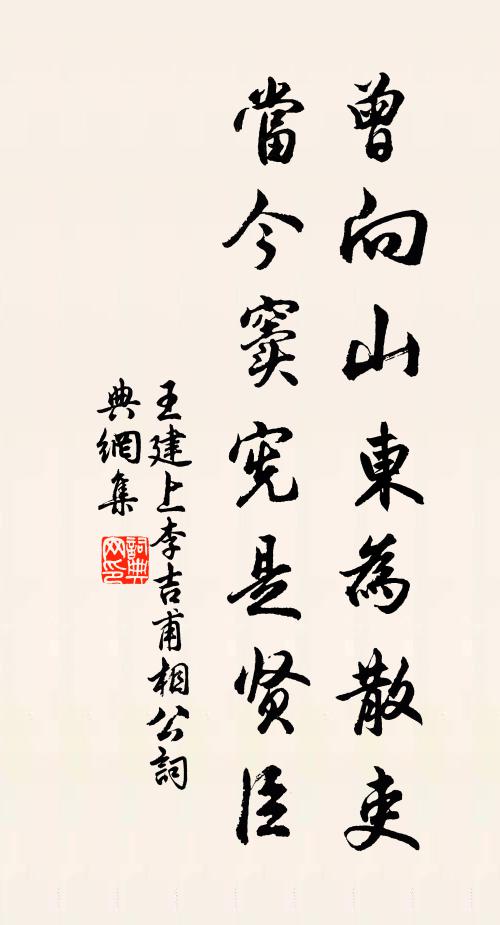 曾向山東為散吏
當今竇宪是贤臣
王建上李吉甫相公詞
典網集
詞典
网印